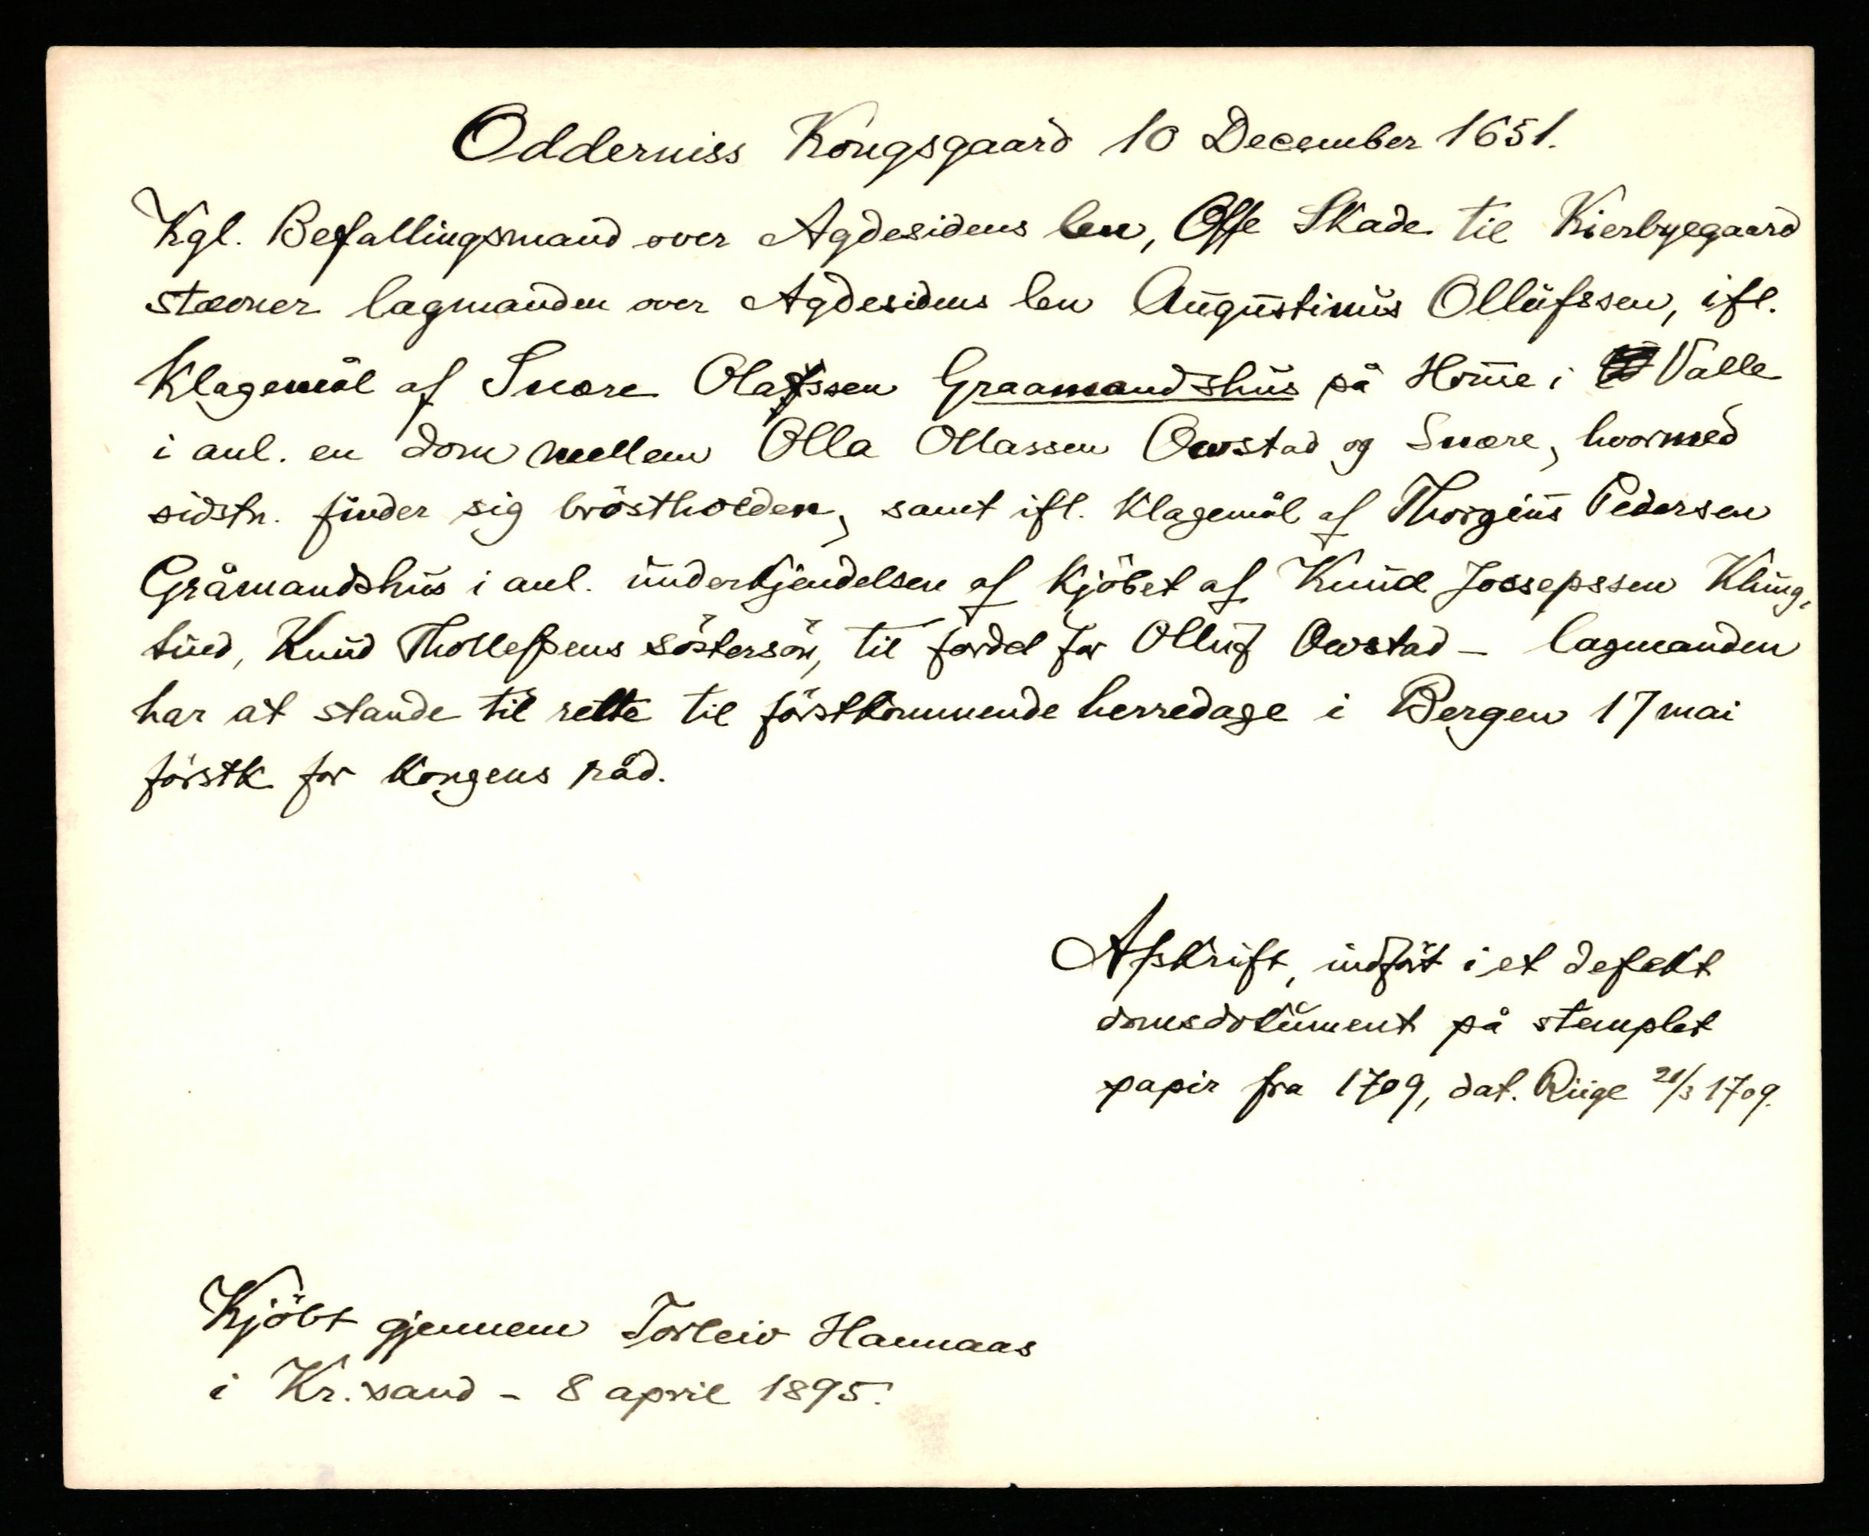 Odderniss Kongsgaard 10 December 1651.
Kgl. Befallingsmand over Agdesidens len, Offe Skade til Kierbyegaard
stævner lagmanden over Agdesidens len Augustinus Ollufssen, ifl.
klagemål af Snore Olafssen Graamandshus på Home i Valle
i anl. en dom mellem Olla Ollassen Owstad og Snore, hvormed
sidstn. finder sig bröstholden, samt ifl. klagemål af Thorgius Pedersen
Gråmandshus i anl. underkjendelsen af kjöbet af Knud Jossepssen Klung,
tued, Knud Thollefsens söstersön, til fordel for Olluf Owstad – lagmanden
har at stande til rette til förstkommende herredage i Bergen 17 mai
förstk for kongens råd.
Afskrift, indfört i et defekt
domsdokument på stemplet
papir fra 1709, dat. Riige 21/3 1709.
Kjöbt gjennem Torleiv Hannaas
i Kr.sand – 8 april 1895.